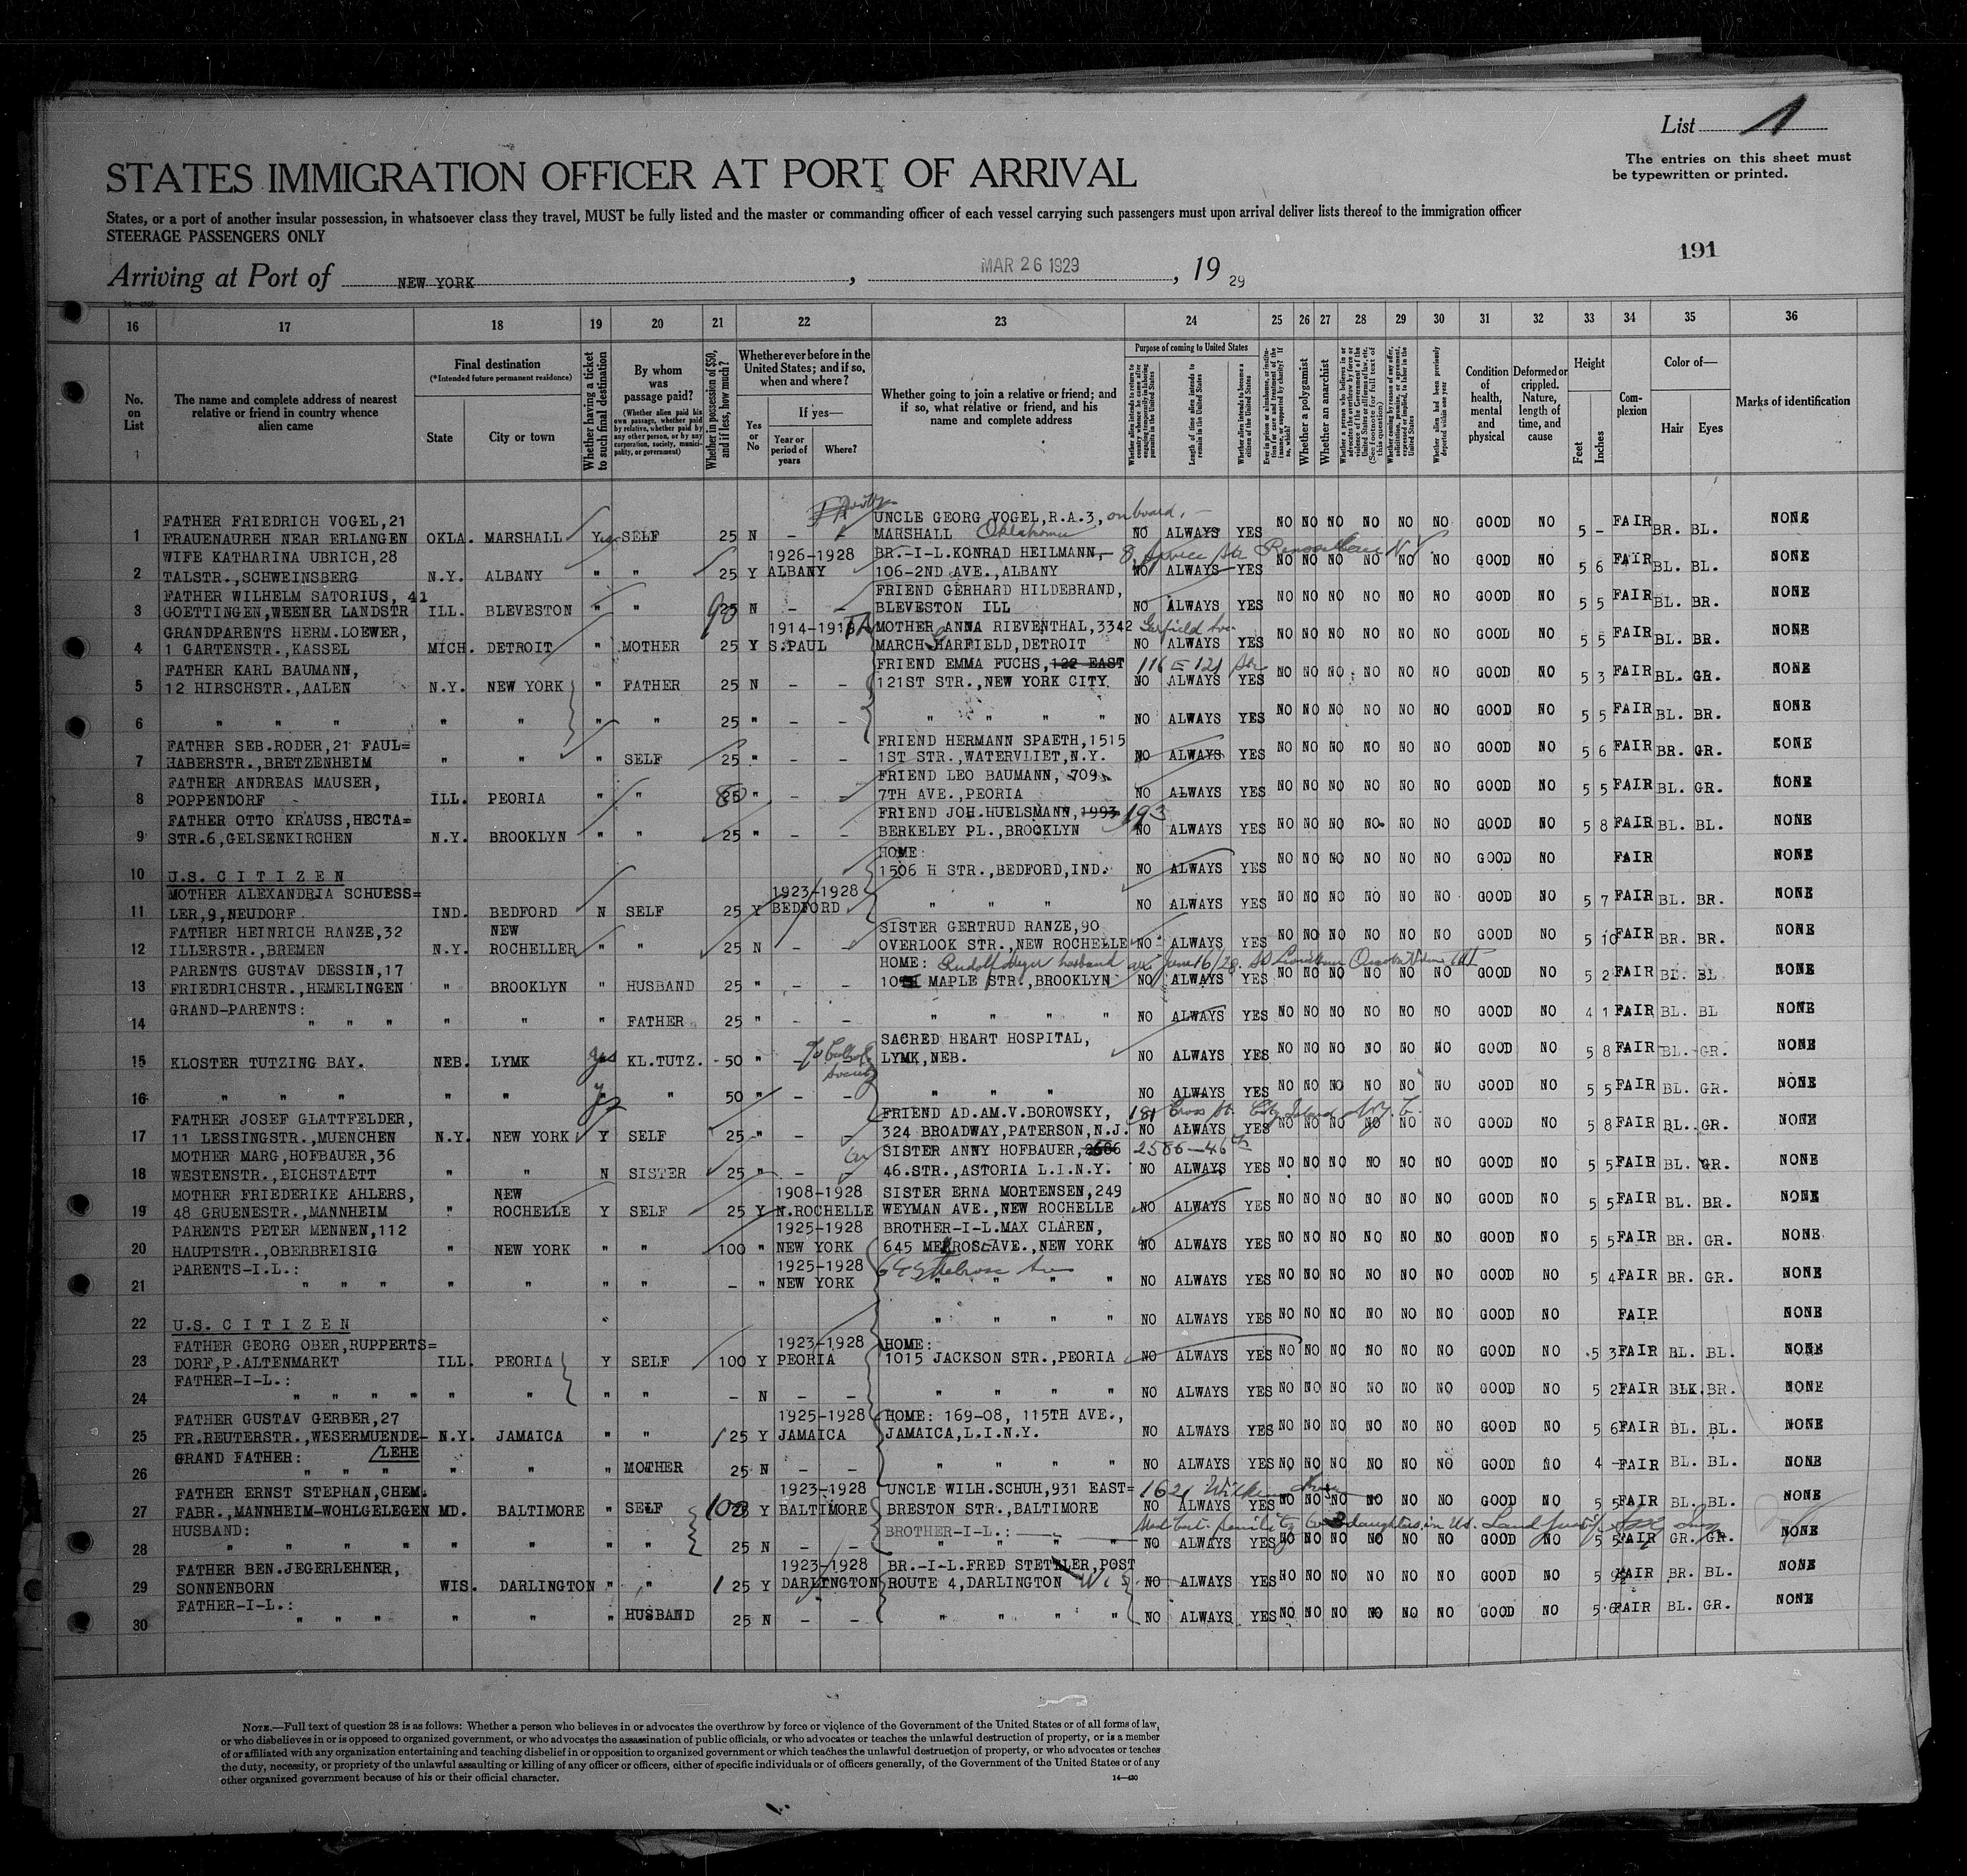 List 1
The entries on this sheet must
be typewritten or printed.
STATES IMMIGRATION OFFICER AT PORT OF ARRIVAL
States, or a port of another insular possession, in whatsoever class they travel, MUST be fully listed and the master or commanding officer of each vessel carrying such passengers must upon arrival deliver lists thereof to the immigration officer
STEERAGE PASSENGERS ONLY
191
Arriving at Port of NEW YORK, MAR 26 1929, 19 29
16 17 18 19 20 21 22 23 24 25 26 27 28 29 30 31 32 33 34 35 36
No. on List
The name and complete address of nearest relative or friend in country whence alien came
Final destination
(*Intended future permanent residence)
State City or town
Whether having a ticket to such final destination
By whom was passage paid?
(Whether alien paid his own passage, whether paid by relative, whether paid by any other person, or by any corporation, society, municipality, or government)
Whether in possession of $50, and if less, how much?
Whether ever before in the United States; and if so, when and where?
Yes or No
If yes—
Year or period of years Where?
Whether going to join a relative or friend; and if so, what relative or friend, and his name and complete address
Purpose of coming to United States
Length of time alien intends to remain in the United States
Whether alien intends to become a citizen of the United States
Whether a polygamist
Whether an anarchist
Condition of health, mental and physical
Deformed or crippled. Nature, length of time, and cause
Height
Feet Inches
Complexion
Color of—
Hair Eyes
Marks of identification
FATHER FRIEDRICH VOGEL,21 UNCLE GEORG VOGEL,R.A.3, on board.
1 FRAUENAUREH NEAR ERLANGEN OKLA. MARSHALL Yes SELF 25 N - MARSHALL Oklahoma NO ALWAYS YES NO NO NO NO NO NO GOOD NO 5 - FAIR BR. BL. NONE
WIFE KATHARINA UBRICH,28 1926-1928 BR.-I-L.KONRAD HEILMANN,
2 TALSTR.,SCHWEINSBERG N.Y. ALBANY " " 25 Y ALBANY 106-2ND AVE.,ALBANY NO ALWAYS YES NO NO NO NO NO NO GOOD NO 5 6 FAIR BL. BL. NONE
FATHER WILHELM SATORIUS, 41 FRIEND GERHARD HILDEBRAND,
3 GOETTINGEN,WEENER LANDSTR ILL. BLEVESTON " " 25 N - - BLEVESTON ILL NO ALWAYS YES NO NO NO NO NO NO GOOD NO 5 5 FAIR BL. BR. NONE
GRANDPARENTS HERM.LOEWER, MOTHER ANNA RIEVENTHAL,3342 Garfield Ave.
4 1 GARTENSTR.,KASSEL MICH. DETROIT " MOTHER 25 Y S.PAUL DETROIT NO ALWAYS YES NO NO NO NO NO NO GOOD NO 5 5 FAIR BL. BR. NONE
FATHER KARL BAUMANN, FRIEND EMMA FUCHS,122 EAST 116 E 121 Str
5 12 HIRSCHSTR.,AALEN N.Y. NEW YORK " FATHER 25 N - - 121ST STR.,NEW YORK CITY NO ALWAYS YES NO NO NO NO NO NO GOOD NO 5 3 FAIR BL. GR. NONE
6 " " " " " " " 25 " - - " " " " NO ALWAYS YES NO NO NO NO NO NO GOOD NO 5 5 FAIR BL. BR. NONE
FATHER SEB.RODER,21 FAUL= FRIEND HERMANN SPAETH,1515
7 HABERSTR.,BRETZENHEIM " " " SELF 25 " - - 1ST STR.,WATERVLIET,N.Y. NO ALWAYS YES NO NO NO NO NO NO GOOD NO 5 6 FAIR BR. GR. NONE
FATHER ANDREAS MAUSER, FRIEND LEO BAUMANN, 709
8 POPPENDORF ILL. PEORIA " " 25 " - - 7TH AVE.,PEORIA NO ALWAYS YES NO NO NO NO NO NO GOOD NO 5 5 FAIR BL. GR. NONE
FATHER OTTO KRAUSS,HECTA= FRIEND JOH.HUELSMANN,1993 193
9 STR.6,GELSENKIRCHEN N.Y. BROOKLYN " " 25 " - - BERKELEY PL.,BROOKLYN NO ALWAYS YES NO NO NO NO NO NO GOOD NO 5 8 FAIR BL. BL. NONE
HOME:
10 U.S. CITIZEN 1506 H STR.,BEDFORD,IND. NO ALWAYS YES NO NO NO NO NO NO GOOD NO FAIR NONE
MOTHER ALEXANDRIA SCHUESS= 1923-1928
11 LER,9,NEUDORF IND. BEDFORD N SELF 25 Y BEDFORD " " " NO ALWAYS YES NO NO NO NO NO NO GOOD NO 5 7 FAIR BL. BR. NONE
FATHER HEINRICH RANZE,32 NEW SISTER GERTRUD RANZE,90
12 ILLERSTR.,BREMEN N.Y. ROCHELLER " " 25 N - - OVERLOOK STR.,NEW ROCHELLE NO ALWAYS YES NO NO NO NO NO NO GOOD NO 5 10 FAIR BR. BR. NONE
PARENTS GUSTAV DESSIN,17 HOME: husband
13 FRIEDRICHSTR.,HEMELINGEN " BROOKLYN " HUSBAND 25 " - - MAPLE STR.,BROOKLYN NO ALWAYS YES NO NO NO NO NO NO GOOD NO 5 2 FAIR BL. BL NONE
GRAND-PARENTS:
14 " " " " " " FATHER 25 " - - " " " " NO ALWAYS YES NO NO NO NO NO NO GOOD NO 4 1 FAIR BL. BL NONE
SACRED HEART HOSPITAL,
15 KLOSTER TUTZING BAY. NEB. LYMK yes KL.TUTZ. 50 " - - LYMK,NEB. NO ALWAYS YES NO NO NO NO NO NO GOOD NO 5 8 FAIR BL. GR. NONE
16 " " " " " " " 50 " - - " " " NO ALWAYS YES NO NO NO NO NO NO GOOD NO 5 5 FAIR BL. GR. NONE
FATHER JOSEF GLATTFELDER, FRIEND AD.AM.V.BOROWSKY, 181 Cross St. City Island N.Y.C.
17 11 LESSINGSTR.,MUENCHEN N.Y. NEW YORK Y SELF 25 " - - 324 BROADWAY,PATERSON,N.J. NO ALWAYS YES NO NO NO NO NO NO GOOD NO 5 8 FAIR BL. GR. NONE
MOTHER MARG,HOFBAUER,36 SISTER ANNY HOFBAUER, 2586-46th
18 WESTENSTR.,EICHSTAETT " " N SISTER 25 " - - 46.STR.,ASTORIA L.I.N.Y. NO ALWAYS YES NO NO NO NO NO NO GOOD NO 5 5 FAIR BL. GR. NONE
MOTHER FRIEDERIKE AHLERS, NEW 1908-1928 SISTER ERNA MORTENSEN,249
19 48 GRUENESTR.,MANNHEIM " ROCHELLE Y SELF 25 Y N.ROCHELLE WEYMAN AVE.,NEW ROCHELLE NO ALWAYS YES NO NO NO NO NO NO GOOD NO 5 5 FAIR BL. BR. NONE
PARENTS PETER MENNEN,112 1925-1928 BROTHER-I-L.MAX CLAREN,
20 HAUPTSTR.,OBERBREISIG " NEW YORK " " 100 " NEW YORK 645 MELROSE AVE.,NEW YORK NO ALWAYS YES NO NO NO NO NO NO GOOD NO 5 5 FAIR BR. GR. NONE
PARENTS-I.L.: 1925-1928 Melrose Ave
21 " " " " " " " - " NEW YORK " " " " NO ALWAYS YES NO NO NO NO NO NO GOOD NO 5 4 FAIR BR. GR. NONE
22 U.S. CITIZEN " " " " NO ALWAYS YES NO NO NO NO NO NO GOOD NO FAIR NONE
FATHER GEORG OBER,RUPPERTS= 1923-1928 HOME:
23 DORF,P.ALTENMARKT ILL. PEORIA Y SELF 100 Y PEORIA 1015 JACKSON STR.,PEORIA NO ALWAYS YES NO NO NO NO NO NO GOOD NO 5 3 FAIR BL. BL. NONE
FATHER-I-L.:
24 " " " " " " " " - N - - " " " " NO ALWAYS YES NO NO NO NO NO NO GOOD NO 5 2 FAIR BLK. BR. NONE
FATHER GUSTAV GERBER,27 1925-1928 HOME: 169-08, 115TH AVE.,
25 FR.REUTERSTR.,WESERMUENDE- N.Y. JAMAICA " " 125 Y JAMAICA JAMAICA,L.I.N.Y. NO ALWAYS YES NO NO NO NO NO NO GOOD NO 5 6 FAIR BL. BL. NONE
GRAND FATHER: /LEHE
26 " " " " " " MOTHER 25 N - - " " " " NO ALWAYS YES NO NO NO NO NO NO GOOD NO 4 - FAIR BL. BL. NONE
FATHER ERNST STEPHAN,CHEM. 1923-1928 UNCLE WILH.SCHUH,931 EAST= 1621
27 FABR.,MANNHEIM-WOHLGELEGEN MD. BALTIMORE " SELF 100 Y BALTIMORE BRESTON STR.,BALTIMORE NO ALWAYS YES NO NO NO NO NO NO GOOD NO 5 5 FAIR BL. BL. NONE
HUSBAND: BROTHER-I-L.: daughters in US.
28 " " " " " " " " 25 N - - " " " NO ALWAYS YES NO NO NO NO NO NO GOOD NO 5 5 FAIR GR. GR. NONE
FATHER BEN.JEGERLEHNER, 1923-1928 BR.-I-L.FRED STETTLER,POST
29 SONNENBORN WIS. DARLINGTON " " 125 Y DARLINGTON ROUTE 4,DARLINGTON Wis NO ALWAYS YES NO NO NO NO NO NO GOOD NO 5 FAIR BR. BL. NONE
FATHER-I-L.:
30 " " " " " " HUSBAND 25 N - - " " " " NO ALWAYS YES NO NO NO NO NO NO GOOD NO 5 6 FAIR BL. GR. NONE
NOTE.—Full text of question 28 is as follows: Whether a person who believes in or advocates the overthrow by force or violence of the Government of the United States or of all forms of law,
or who disbelieves in or is opposed to organized government, or who advocates the assassination of public officials, or who advocates or teaches the unlawful destruction of property, or is a member
of or affiliated with any organization entertaining and teaching disbelief in or opposition to organized government or which teaches the unlawful destruction of property, or who advocates or teaches
the duty, necessity, or propriety of the unlawful assaulting or killing of any officer or officers, either of specific individuals or of officers generally, of the Government of the United States or of any
other organized government because of his or their official character.
14—430